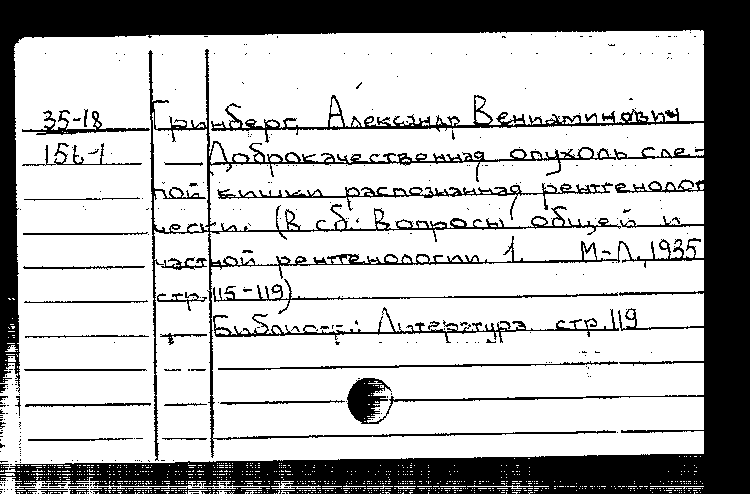 35-18 Гринберг, Александр Вениаминович
156-1 Доброкачественная опухоль сле-
пой кишки распознанная рентгенолог
чески. (В сб.: Вопросы общей и
частной рентгенологии. 1. М-Л., 1935
стр. 115-119).
Библиогр.: Литература стр. 119